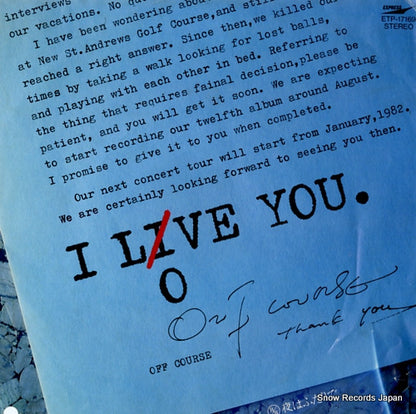 interviews
our vacations. No qu
I have been wondering about
at New St.Andrews Golf Course,and still
reached a right answer. Since then,we killed our
times by taking a walk looking for lost balls,
and playing with each other in bed. Referring to
the thing that requires fainal decision,please be
patient, and you will get it soon. We are expecting
to start recording our twelfth album around August.
I promise to give it to you when completed.
Our next concert tour will start from January,1982.
We are certainly looking forward to seeing you then.
I LIVE YOU.
O
OFF COURSE
Thank you
OFF COURSE
EXPRESS
ETP-17169
STEREO
Snow Records Japan